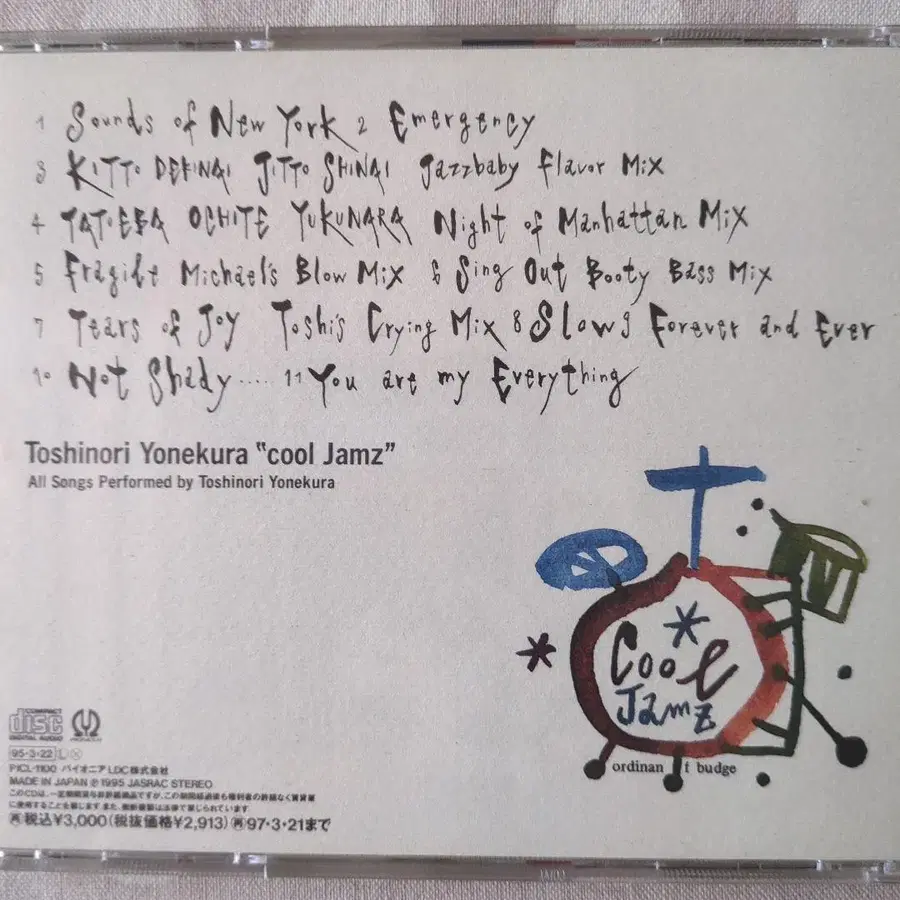 1 Sounds of New York 2 Emergency
3 KITTO DEKINAI JITTO SHINAI Jazzbaby Flavor Mix
4 TATOEBA OCHITE YUKUNARA Night of Manhattan Mix
5 Fragile Michael's Blow Mix 6 Sing Out Booty Bass Mix
7 Tears of Joy Toshi's Crying Mix 8 Slow 9 Forever and Ever
10 Not Shady.... 11 You are my Everything
Toshinori Yonekura "cool Jamz"
All Songs Performed by Toshinori Yonekura
Cool
Jamz
ordinan f budge
COMPACT
disc
DIGITAL AUDIO
95·3·22 L X
PICL-1100 パイオニアLDC株式会社
MADE IN JAPAN ℗1995 JASRAC STEREO
このCDは、一定期間貸与非許諾商品ですが、この期間経過後も権利者の許諾なく賃貸業
に使用することを禁じます。また、無断複製は法律で禁じられています
再税込¥3,000(税抜価格¥2,913)再97·3·21まで